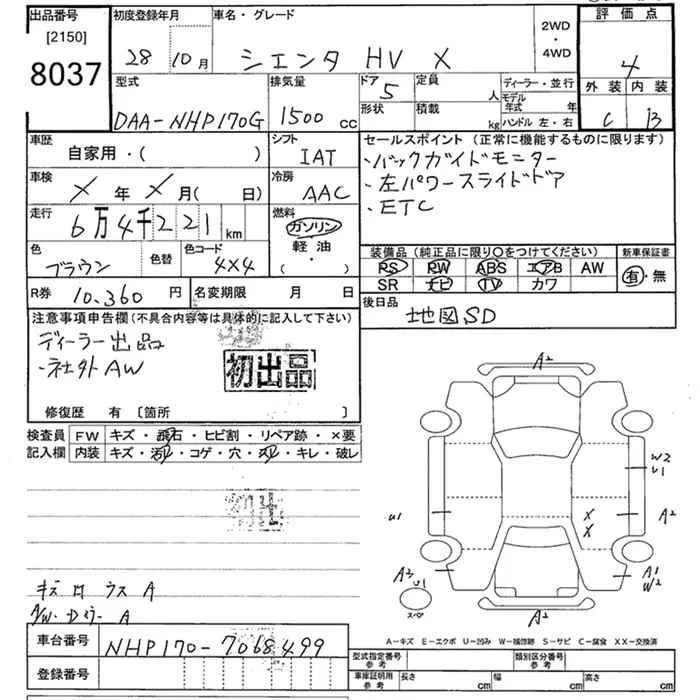 出品番号
[2150]
8037
初度登録年月
28 10月
車名・グレード
シエンタ HV X
2WD
・
4WD
評価点
4
外装 内装
C B
型式
DAA-NHP170G
排気量
1500 cc
ドア 5
形状
定員 人
積載 kg
ディーラー・並行
モデル年式 年
ハンドル 左・右
車歴
自家用・( )
シフト
IAT
車検
X 年 X 月( 日)
冷房
AAC
走行
6万4千221 km
燃料
ガソリン
軽油
( ・ )
色
ブラウン
色替
色コード
4X4
セールスポイント (正常に機能するものに限ります)
・バックガイドモニター
・左パワースライドドア
・ETC
装備品 (純正品に限り○をつけてください)
RS RW ABS エアB AW
SR ナビ TV カワ
新車保証書
有・無
R券 10,360 円
名変期限 月 日
後日品
地図SD
注意事項申告欄(不具合内容等は具体的に記入して下さい)
ディーラー出品
・社外AW
初出品
修復歴 有 [箇所 ]
検査員
記入欄
FW キズ・飛石・ヒビ割・リペア跡・×要
内装 キズ・汚レ・コゲ・穴・スレ・キレ・破レ
初出
A2
W2
U1
U1
X
X
A2
A3
U1
スペ
A1
W2
A2
キズ ロ ウス A
A/W・Dミラー A
A-キズ E-エクボ U-凹み W-補修跡 S-サビ C-腐食 XX-交換済
車台番号
NHP170-7068499
登録番号
型式指定番号
参考
類別区分番号
参考
車庫証明用
参考
長さ cm
幅 cm
高さ cm